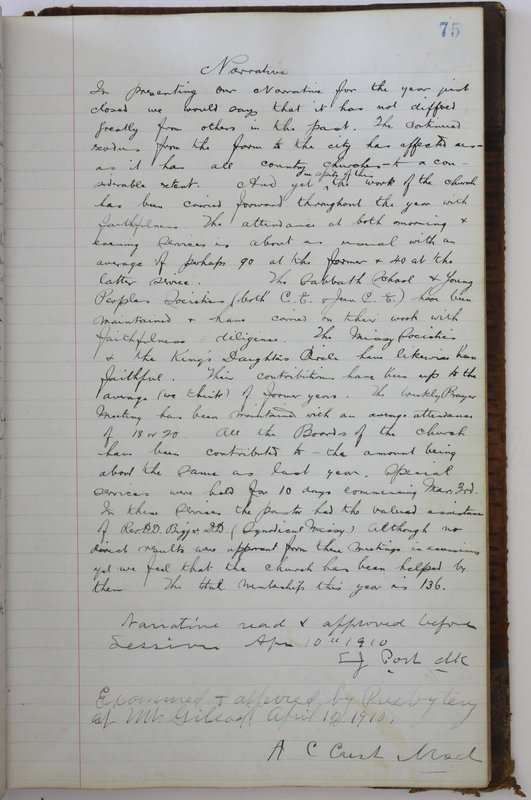 75
Narrative
In presenting our Narrative for the year just
closed we would say that it has not differed
greatly from others in the past. The continued
exodus from the farm to the city has affected us -
as it has all country churches - to a con-
siderable extent. And yet in spite of this the work of the church
has been carried forward throughout the year with
faithfulness. The attendance at both morning &
evening services is about as usual with an
average of perhaps 90 at the former & 40 at the
latter service. The Sabbath School & Young
Peoples Societies (both C. E. & Jun C. E.) have been
maintained & have carried on their work with
faithfulness diligence. The Missy Societies
& the King's Daughters Circle have likewise been
faithful. Their contributions have been up to the
average (we think) of former years. The Weekly Prayer
Meeting has been maintained with an average attendance
of 18 or 20. All the Boards of the church
have been contributed to - the amount being
about the same as last year. Special
services were held for 10 days commencing Mar. 3rd.
In these services the pastor had the valued assistance
of Rev. D.D. Bigger D.D. (Synodical Missy.) Although no
direct results were apparent from these meetings in accessions
yet we feel that the church has been helped by
them. The total membership this year is 136.
Narrative read & approved before
Session Apr 10th 1910
Post clk
Examined & approved by Presbytery
at Mt. Gilead April 12, 1910.
A C Crist Mod